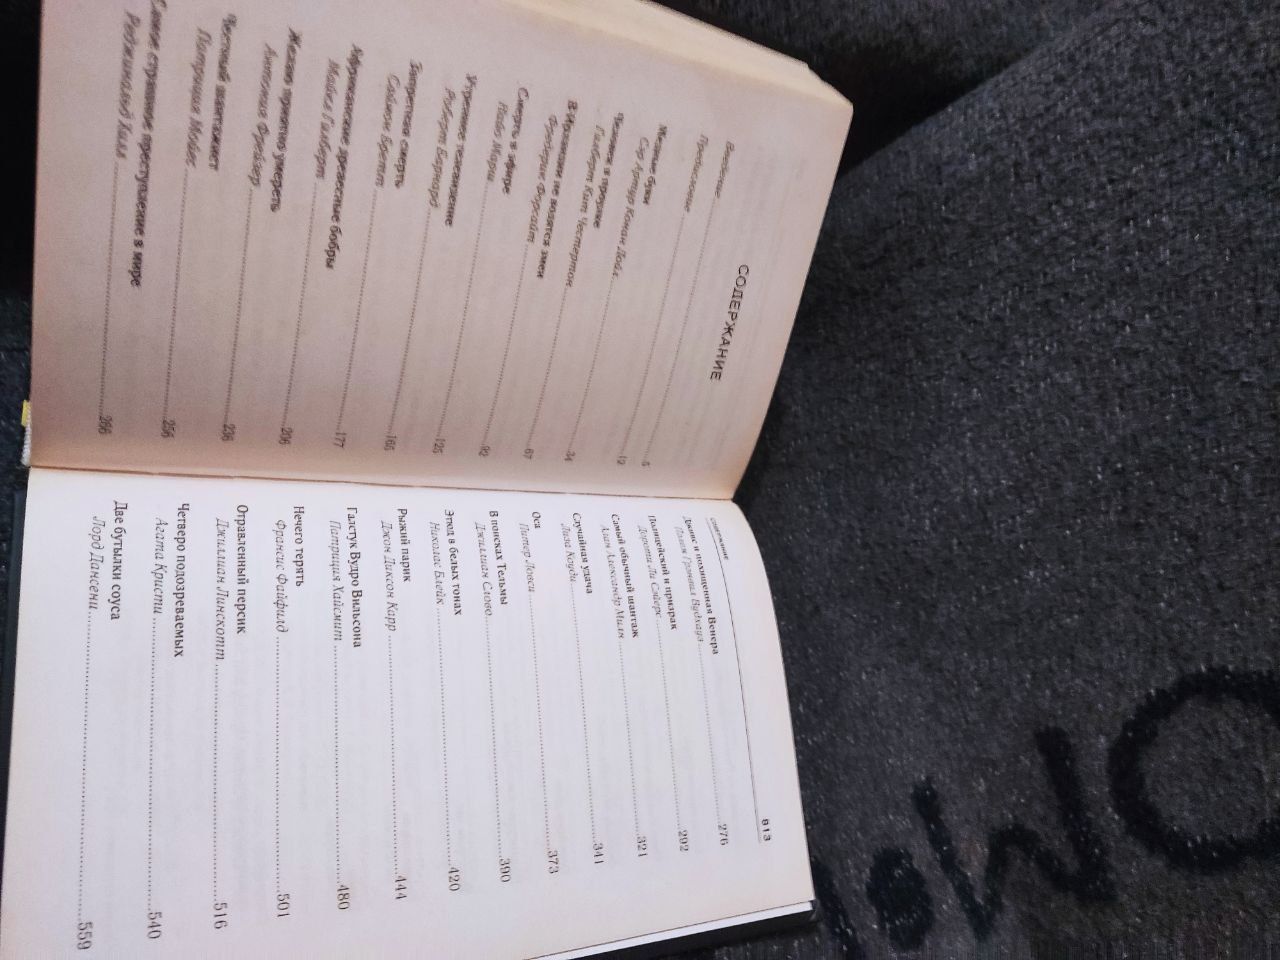 СОДЕРЖАНИЕ
Введение
Предисловие.....5
Медные буки
Сэр Артур Конан Дойл.....12
Человек в проулке
Гилберт Кит Честертон.....34
В Ирландии не водятся змеи
Фредерик Форсайт.....67
Смерть в эфире
Найо Марш.....92
Утреннее телевидение
Роберт Барнард.....125
Запретная смерть
Саймон Бретт.....166
Африканские древесные бобры
Майкл Гилберт.....177
Желаю приятно умереть
Антония Фрейзер.....206
Честный шантажист
Патриция Мойес.....236
Самое страшное преступление в мире
Реджинальд Хилл.....256
.....266
СОДЕРЖАНИЕ 613
Дживс и похищенная Венера
Пэлем Грэнвил Вудхауз.....276
Полицейский и призрак
Дороти Ли Сэйерс.....292
Самый обычный шантаж
Алан Александр Милн.....321
Случайная удача
Лиза Коуди.....341
Оса
Питер Ловси.....373
В поисках Тельмы
Джиллиан Слово.....390
Этюд в белых тонах
Николас Блейк.....420
Рыжий парик
Джон Диксон Карр.....444
Галстук Вудро Вильсона
Патриция Хайсмит.....480
Нечего терять
Франсис Файфилд.....501
Отравленный персик
Джиллиан Линскотт.....516
Четверо подозреваемых
Агата Кристи.....540
Две бутылки соуса
Лорд Дансени.....559